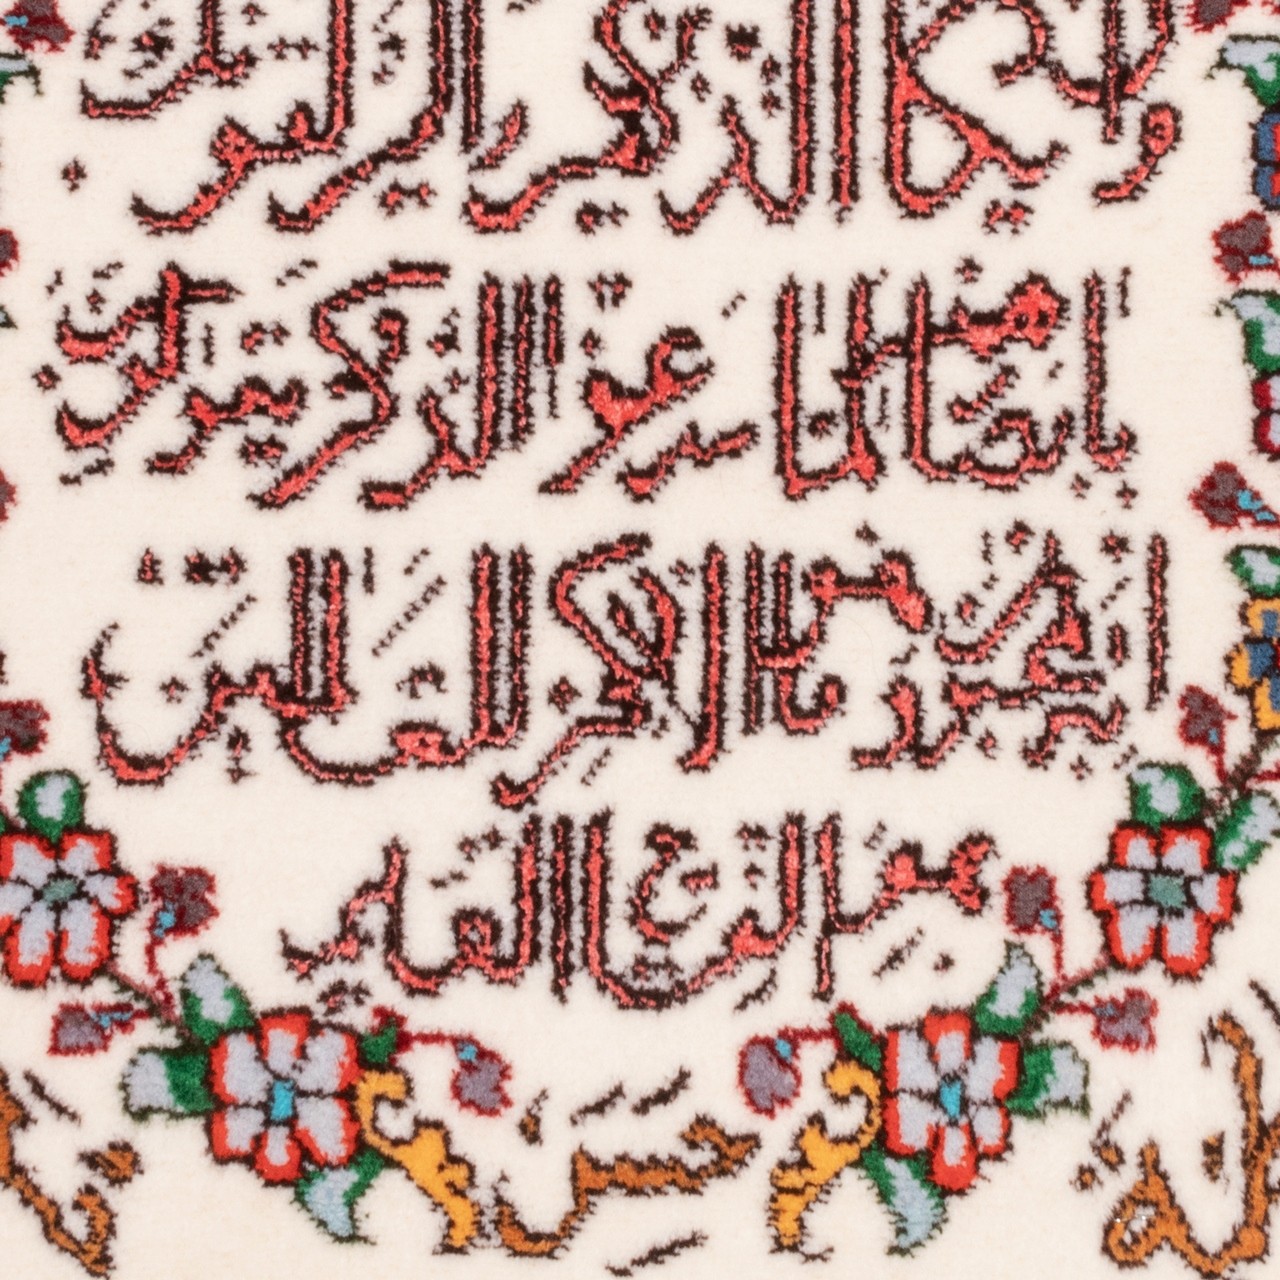 وان يكاد الذين كفروا ليزلقونك
بابصارهم لما سمعوا الذكر ويقولون
انه لمجنون وما هو الا ذكر للعالمين
هو الفتاح العليم